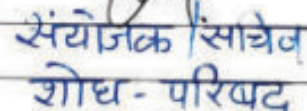 संयोजक / सचिव
शोध - परिषद